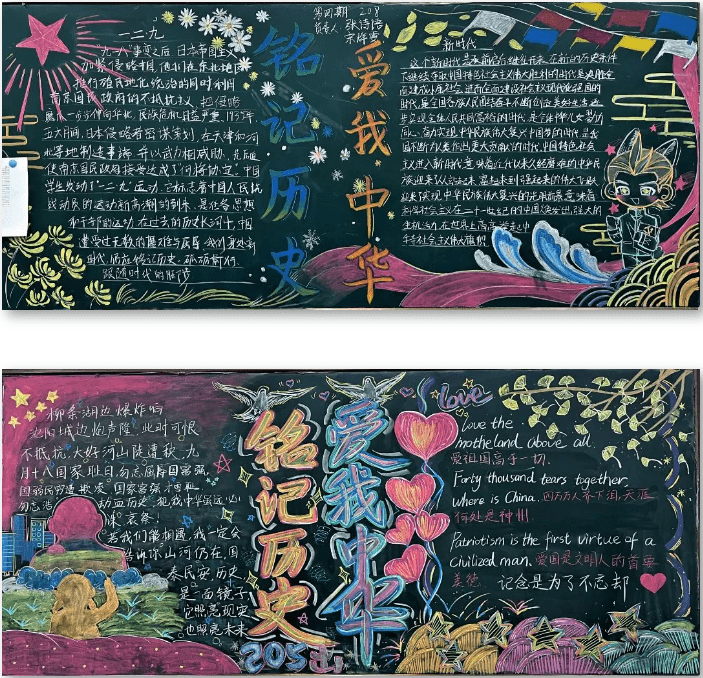 一二·九
"九一八"事变之后,日本帝国主义
加紧侵略中国,他们在东北地区
推行殖民地化统治的同时利用
南京国民政府的不抵抗主义,把侵略
五六月间,日本侵略者密谋策划,在天津和河
北等地制造事端,并以武力相威胁,先后
使南京国民政府接受达成了"何梅协定",中国
学生发动了"一二·九"运动,它标志着中国人民抗
战动员的运动新高潮的到来,是准备思想
和干部的运动,在过去的历史长河中,中国
遭受过无数的
时代,
跟随时代的脚步
铭记历史
第四期 208
爱我中华
新时代
这个新时代是承前启后继往开来,在新的历史条件
下继续夺取中国特色社会主义伟大胜利的时代,是决胜全
面建成小康社会,进而全面建设社会主义现代化强国的
时代,是全国各族人民团结奋斗不断创造美好生活逐
步实现全体人民共同富裕的时代,是全体中华儿女勠力
同心,奋力实现中华民族伟大复兴中国梦的时代,是我
国不断为人类作出更大贡献的时代,中国特色社会
主义进入新时代,意味着近代以来久经磨难的中华民
族迎来了从站起来,富起来到强起来的伟大飞跃
迎来实现中华民族伟大复兴的光明前景,意味着
科学社会主义在二十一世纪的中国焕发出强大的
生机活力,在世界上高高举起了中
国特色社会主义伟大旗帜
柳条湖边爆炸响
沈阳城边炮声隆,此时可恨
不抵抗,大好河山陡遭获,九
月十八国家耻日,勿忘屈辱国当强
国弱民穷遭欺凌,国家富强才
动血历史,犯我中华虽远必
若我们能相遇,我一定会
告诉你山河仍在,国
泰民安,历史
是一面镜子
它照亮现实
也照亮未来
铭记历史
爱我中华
205
love
Love the
motheland above all.
爱祖国高于一切.
Forty thousand tears together,
where is China. 四万万人齐下泪,天涯
何处是神州
Patriotism is the first virtuer of a
civilized man. 爱国是文明人的首要
美德 记念是为了不忘却